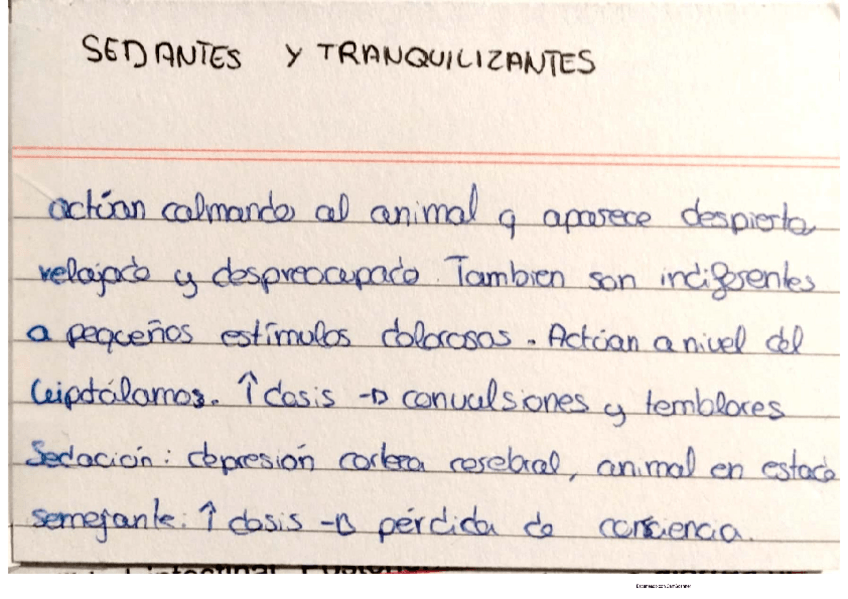 SEDANTES Y TRANQUILIZANTES
actúan calmando al animal q aparece despierto,
relajado y despreocupado. Tambien son indiferentes
a pequeños estímulos dolorosos. Actúan a nivel del
hipotálamos. ↑ dosis → convulsiones y temblores
Sedación: depresión corteza cerebral, animal en estado
semejante: ↑ dosis → pérdida de consciencia.